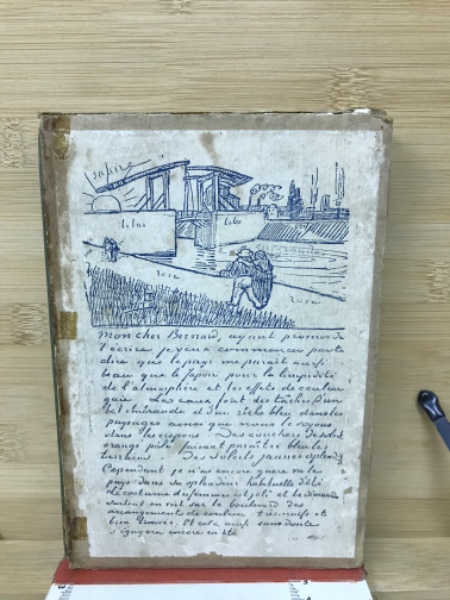 lilas
lilas
rose
rose
Mon cher Bernard, ayant promis de
t'écrire je veux commencer par te
dire que le pays me parait aussi
beau que le Japon pour la limpidité
de l'atmosphère et les effets de couleur
gaie. Les eaux font des tâches d'un
bel émeraude et d'un riche bleu dans les
paysages ainsi que nous le voyons
dans les crepons. Des couchers de soleil
orangé pâle faisant paraître bleus les
terrains. Des soleils jaunes splendides
Cependant je n'ai encore guère vu le
pays dans sa splendeur habituelle d'été
Le costume des femmes est joli et le dimanche
surtout on voit sur le boulevard des
arrangements de couleur très naifs et
bien trouvés. Et cela aussi sans doute
s'égayera encore en été